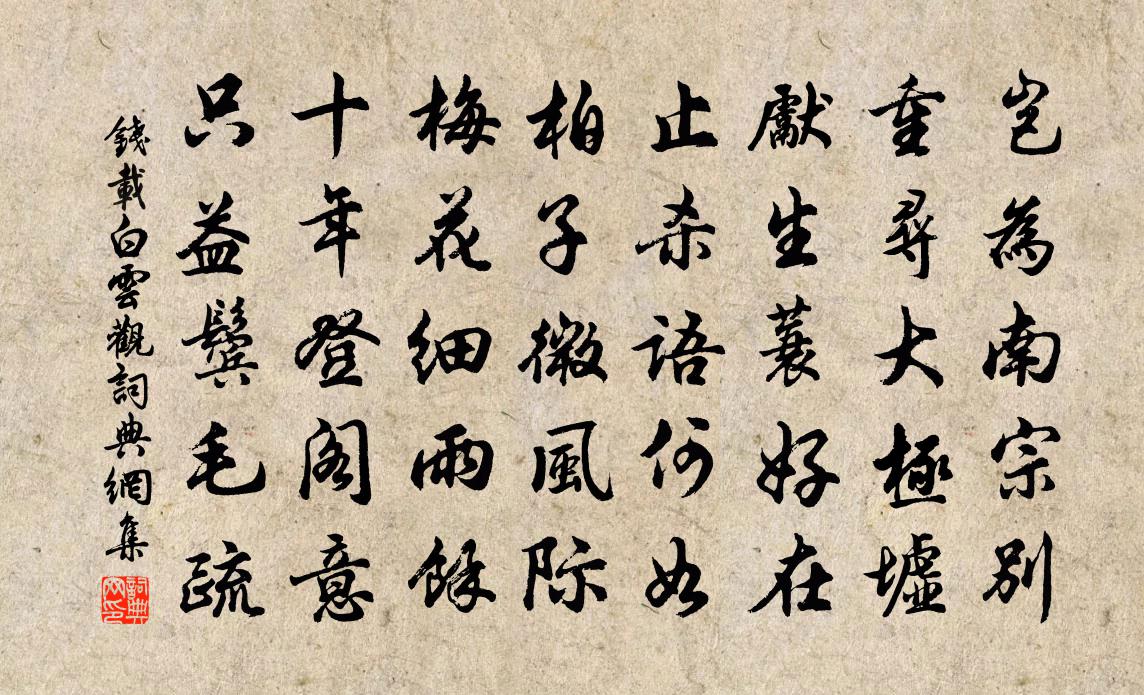 岂為南宗别
重尋大極墟
獻生蓑好在
止杀語何如
柏子微風际
梅花細雨餘
十年登阁意
只益鬓毛疏
錢載白雲觀詞典網集
詞典
网印